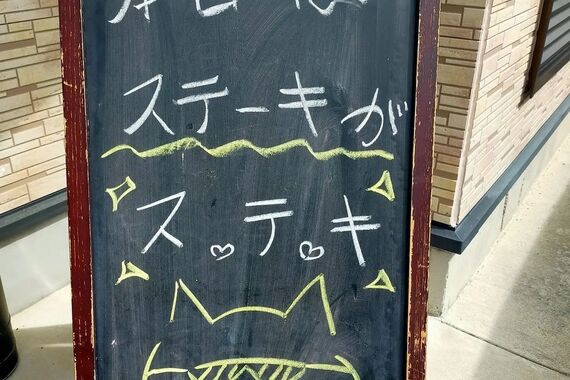 ステーキが
ス♡テ♡キ